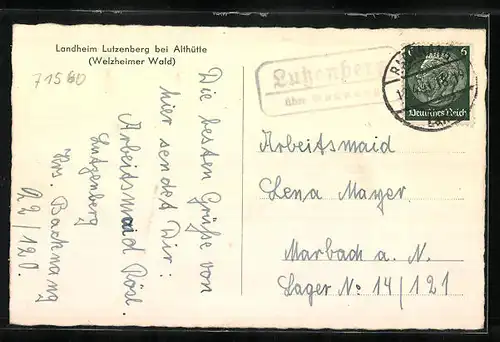 Landheim Lutzenberg bei Althütte
(Welzheimer Wald)
71560
Die besten Grüße von
hier sendet Dir:
Arbeitsmaid Rösl.
Lutzenberg
Krs. Backnang
A2/120.
Lutzenberg
über Backnang
6
Deutsches Reich
Arbeitsmaid
Lena Mayer
Marbach a. N.
Lager No 14/121